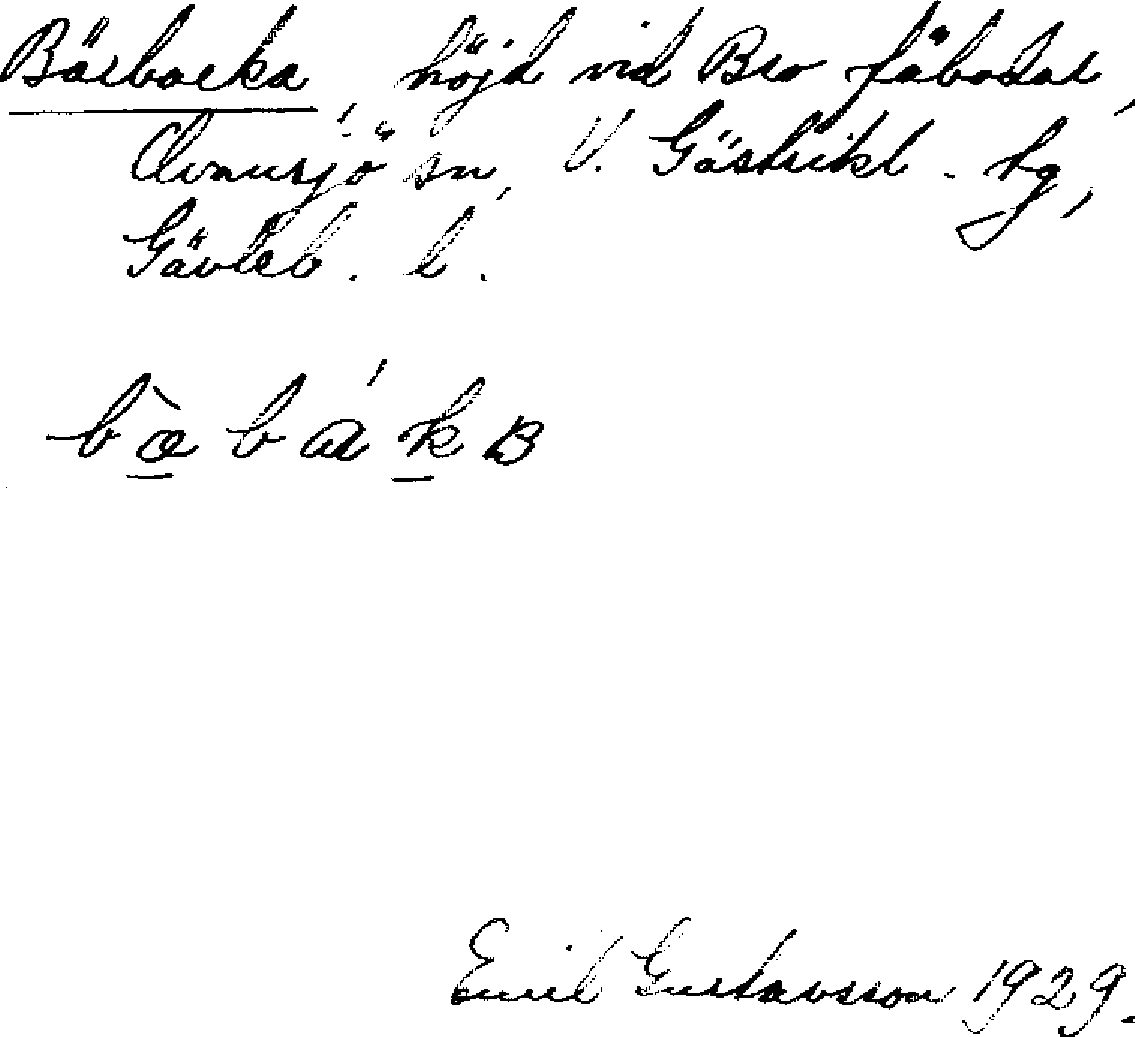 Bärbacka, höjd vid Bro fäbodar,
Ovansjö sn, V. Gästrikl. hg,
Gävleb. l.
bæbákB
Emil Gustavsson 1929.